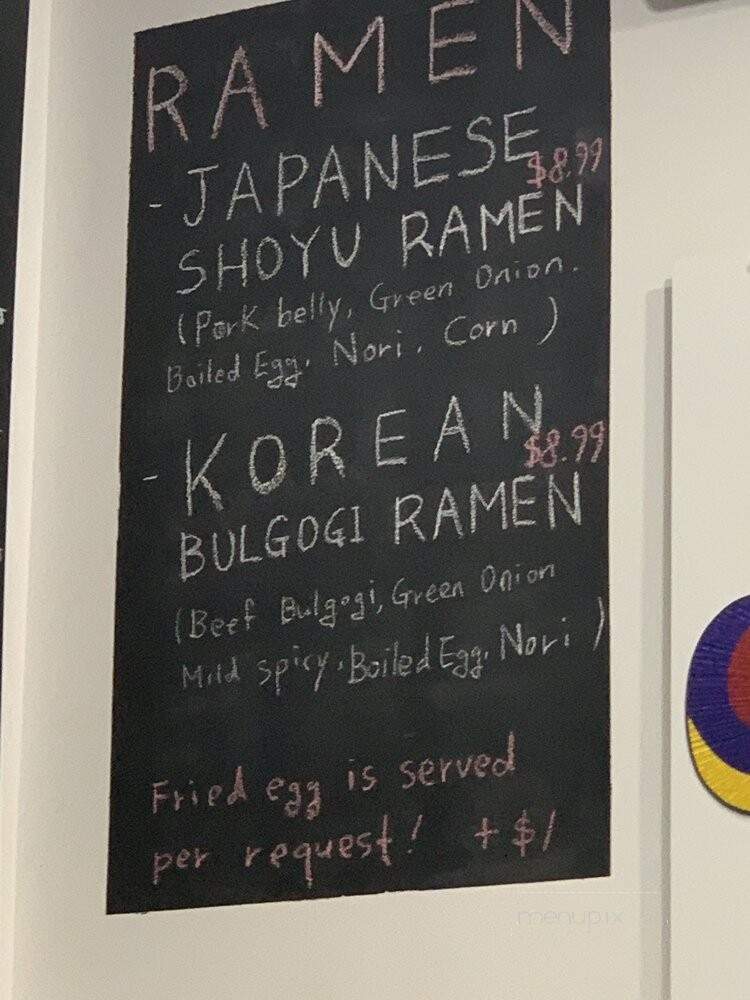 RAMEN
- JAPANESE
$8.99
SHOYU RAMEN
(Pork belly, Green Onion.
Boiled Egg. Nori. Corn)
- KOREAN
$8.99
BULGOGI RAMEN
(Beef Bulgogi, Green Onion
Mild spicy. Boiled Egg. Nori)
Fried egg is served
per request! + $1
menupix